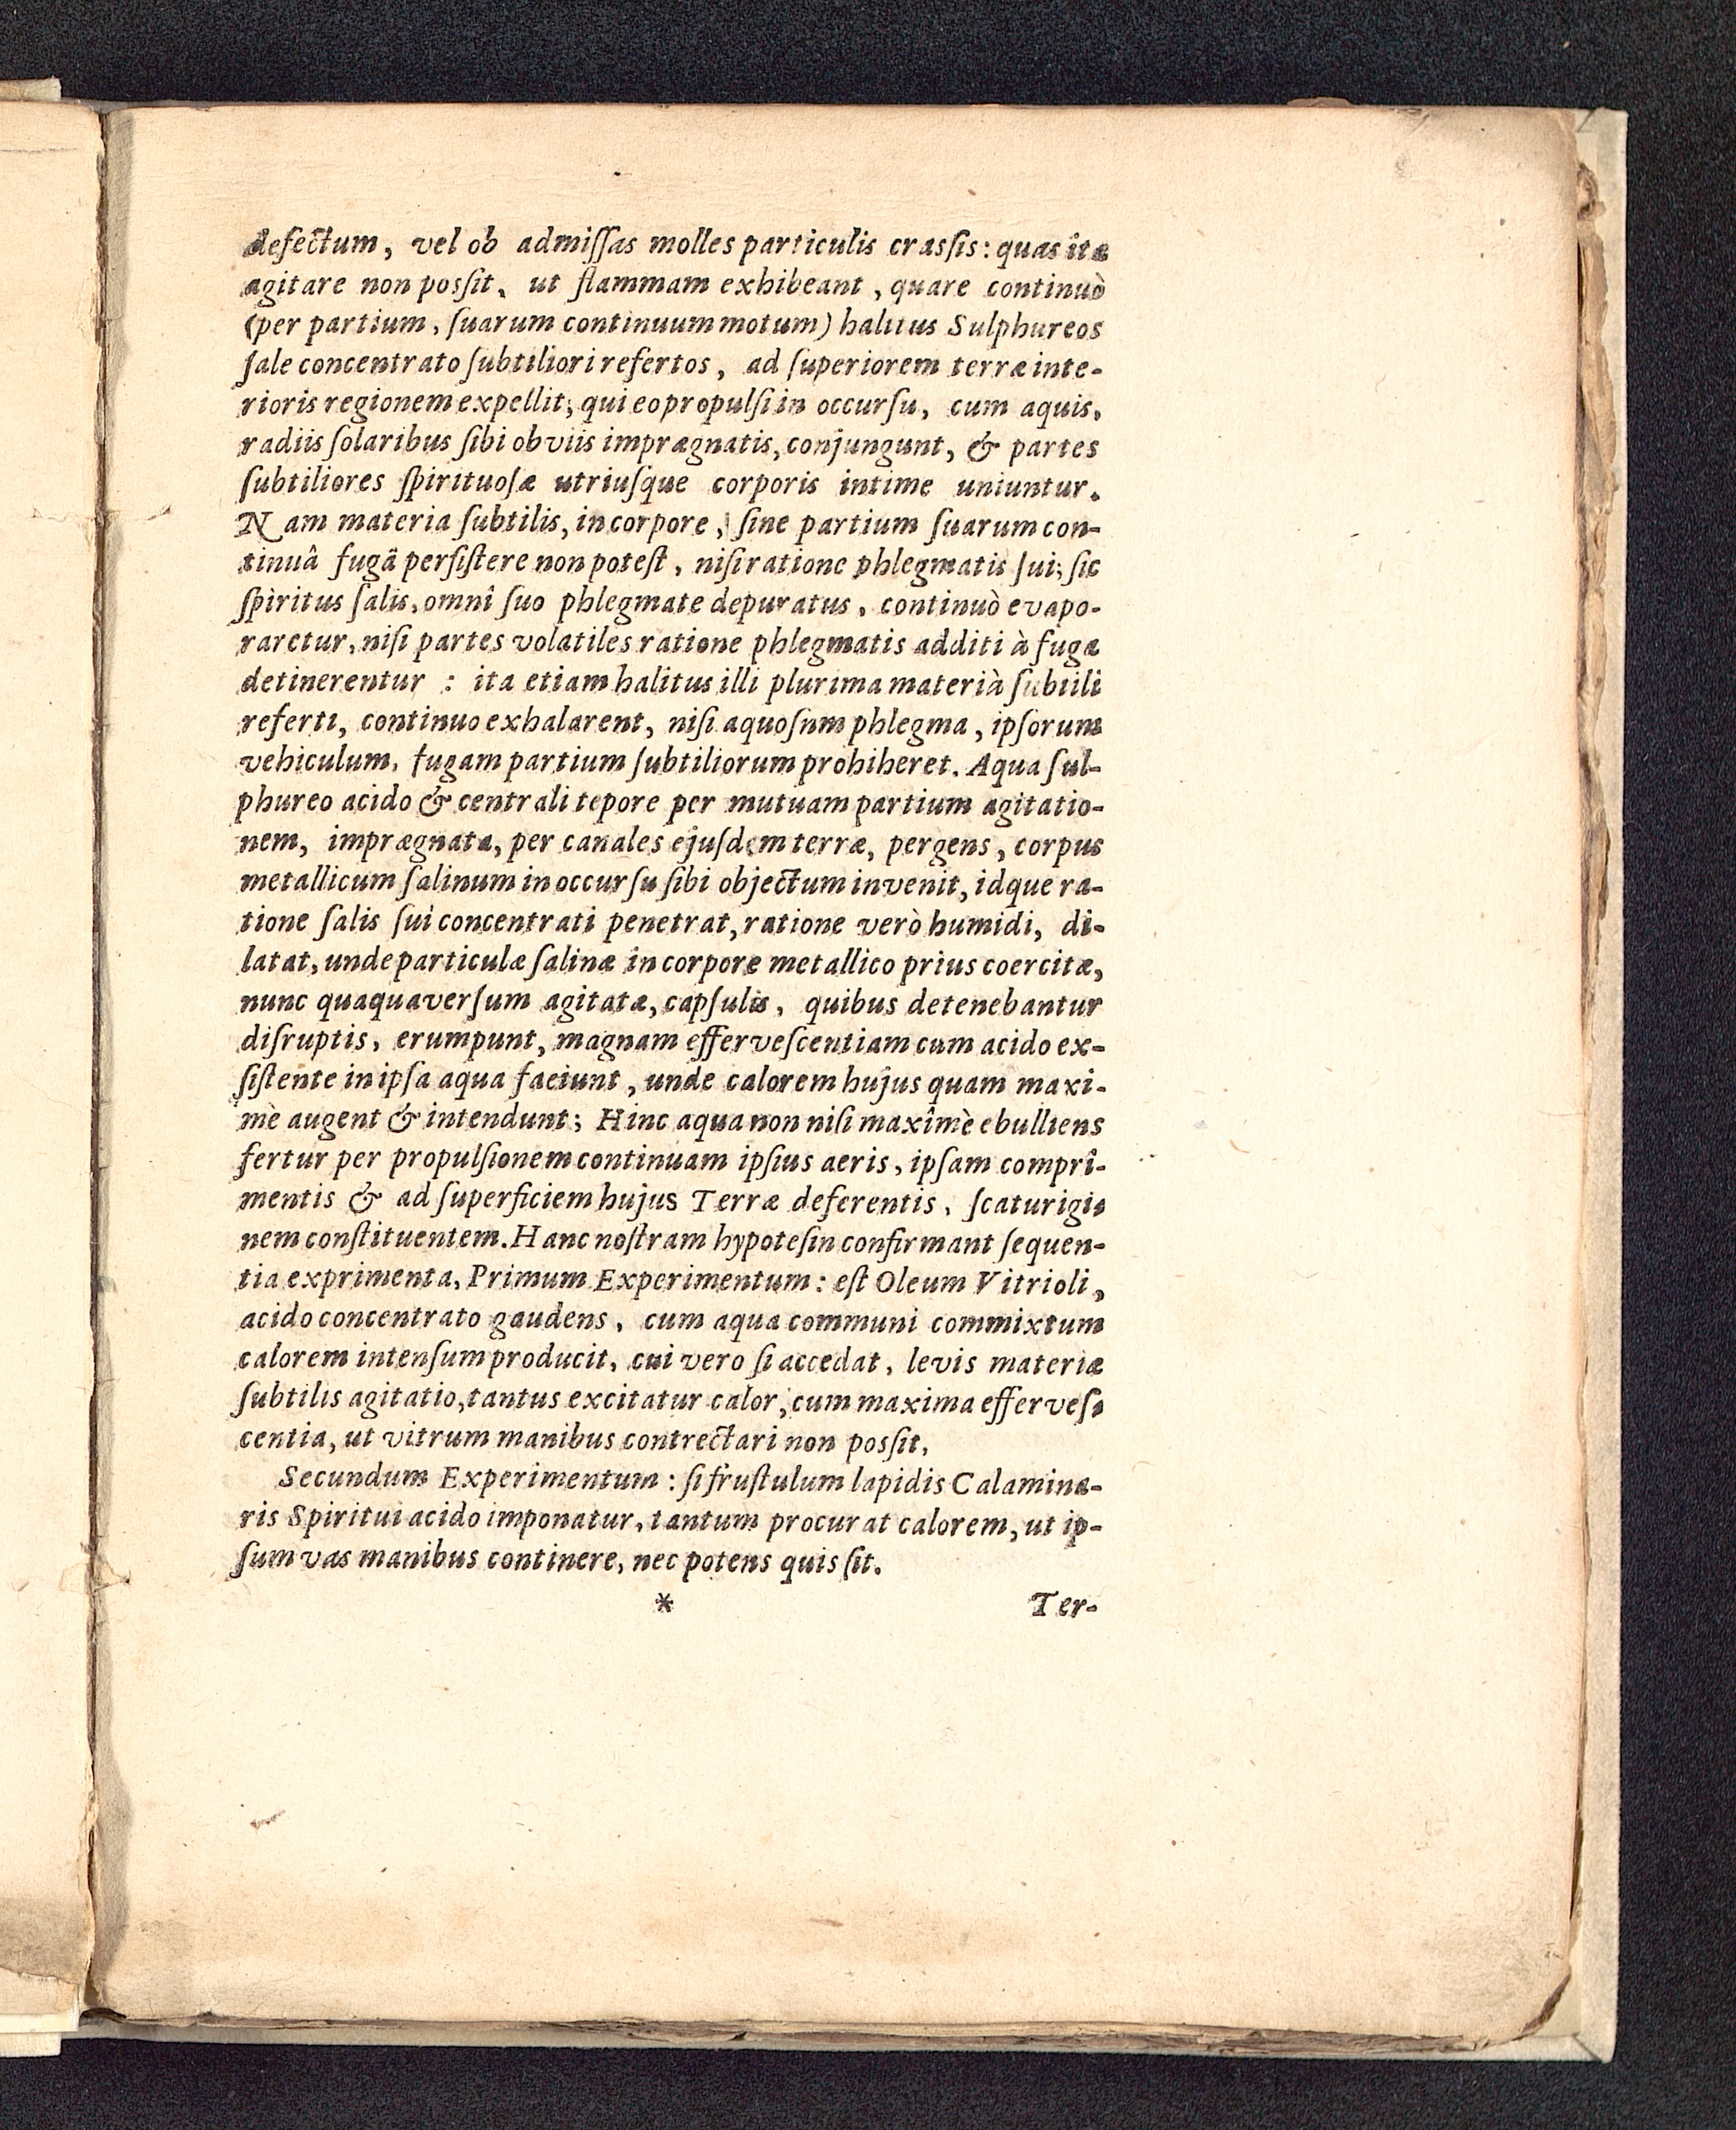 defectum, vel ob admiſſas molles particulis craſsis: quas ita
agitare non poſsit, ut flammam exhibeant, quare continuò
(per partium, ſuarum continuum motum) halitus Sulphureos
ſale concentrato ſubtiliori refertos, ad ſuperiorem terræ inte-
rioris regionem expellit; qui eo propulſi in occurſu, cum aquis,
radiis ſolaribus ſibi obviis imprægnatis, conjungunt, & partes
ſubtiliores ſpirituoſæ utriuſque corporis intime uniuntur.
Nam materia ſubtilis, in corpore, ſine partium ſuarum con-
tinuâ fugâ perſiſtere non poteſt, niſi ratione phlegmatis ſui; ſic
ſpiritus ſalis, omni ſuo phlegmate depuratus, continuò evapo-
raretur, niſi partes volatiles ratione phlegmatis additi à fuga
detinerentur : ita etiam halitus illi plurima materià ſubtili
referti, continuo exhalarent, niſi aquoſum phlegma, ipſorum
vehiculum, fugam partium ſubtiliorum prohiheret. Aqua ſul-
phureo acido & centrali tepore per mutuam partium agitatio-
nem, imprægnata, per canales ejuſdem terræ, pergens, corpus
metallicum ſalinum in occurſu ſibi objectum invenit, idque ra-
tione ſalis ſui concentrati penetrat, ratione verò humidi, di-
latat, unde particulæ ſalinæ in corpore metallico prius coercitæ,
nunc quaquaverſum agitatæ, capſulis, quibus detenebantur
diſruptis, erumpunt, magnam efferveſcentiam cum acido ex-
ſiſtente in ipſa aqua faciunt, unde calorem hujus quam maxi-
mè augent & intendunt; Hinc aqua non niſi maximè ebulliens
fertur per propulſionem continuam ipſius aeris, ipſam compri-
mentis & ad ſuperficiem hujus Terræ deferentis, ſcaturigi-
nem conſtituentem. Hanc noſtram hypoteſin confirmant ſequen-
tia exprimenta, Primum Experimentum: eſt Oleum Vitrioli,
acido concentrato gaudens, cum aqua communi commixtum
calorem intenſum producit, cui vero ſi accedat, levis materiæ
ſubtilis agitatio, tantus excitatur calor, cum maxima efferveſ-
centia, ut vitrum manibus contrectari non poſsit,
Secundum Experimentum: ſi fruſtulum lapidis Calamina-
ris Spiritui acido imponatur, tantum procurat calorem, ut ip-
ſum vas manibus continere, nec potens quis ſit.
* Ter-